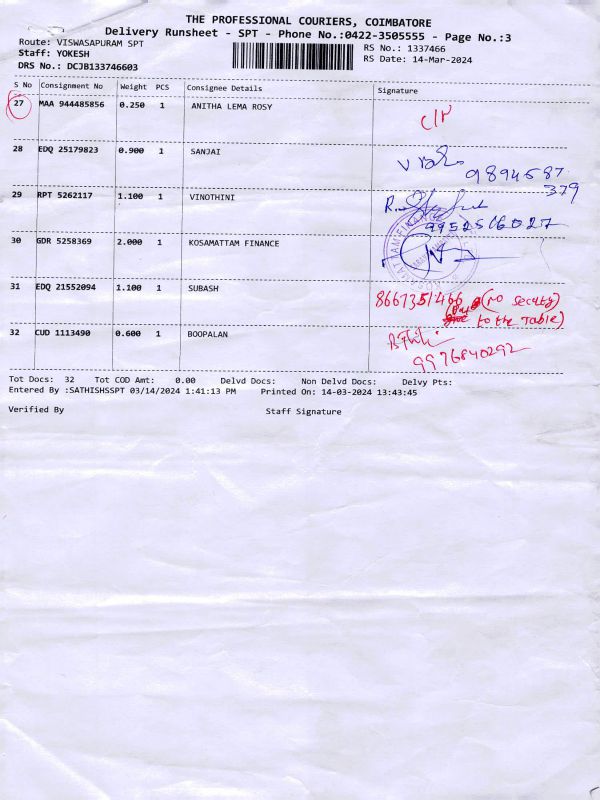 THE PROFESSIONAL COURIERS, COIMBATORE
Delivery Runsheet - SPT - Phone No.:0422-3505555 - Page No.:3
Route: VISWASAPURAM SPT
RS No.: 1337466
Staff: YOKESH
RS Date: 14-Mar-2024
DRS No.: DCJB133746603
S No Consignment No Weight PCS Consignee Details Signature
27 MAA 944485856 0.250 1 ANITHA LEMA ROSY
28 EDQ 25179823 0.900 1 SANJAI
9894587
379
29 RPT 5262117 1.100 1 VINOTHINI
9952516027
30 GDR 5258369 2.000 1 KOSAMATTAM FINANCE
31 EDQ 21552094 1.100 1 SUBASH
8667351466 (no security)
to the Table)
32 CUD 1113490 0.600 1 BOOPALAN
9976840292
Tot Docs: 32 Tot COD Amt: 0.00 Delvd Docs: Non Delvd Docs: Delvy Pts:
Entered By :SATHISHSSPT 03/14/2024 1:41:13 PM Printed On: 14-03-2024 13:43:45
Verified By Staff Signature